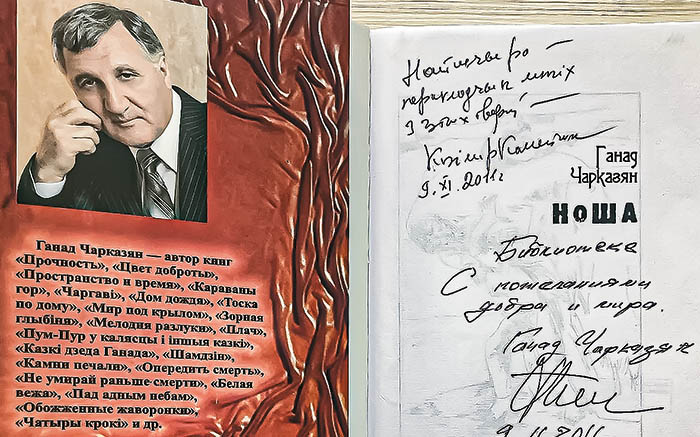 Ганад Чарказян — автор книг
«Прочность», «Цвет доброты»,
«Пространство и время», «Караваны
гор», «Чаргаві», «Дом дождя», «Тоска
по дому», «Мир под крылом», «Зорная
глыбіня», «Мелодия разлуки», «Плач»,
«Пум-Пур у калясцы і іншыя казкі»,
«Казкі дзеда Ганада», «Шамдзін»,
«Камни печали», «Опередить смерть»,
«Не умирай раньше смерти», «Белая
вежа», «Пад адным небам»,
«Обожженные жаворонки»,
«Чатыры крокі» и др.
перакладчык
з гэтых
9.XI.2011г
Ганад
Чарказян
НОША
Библиотеке
С пожеланиями
добра и мира.
Ганад Чарказян